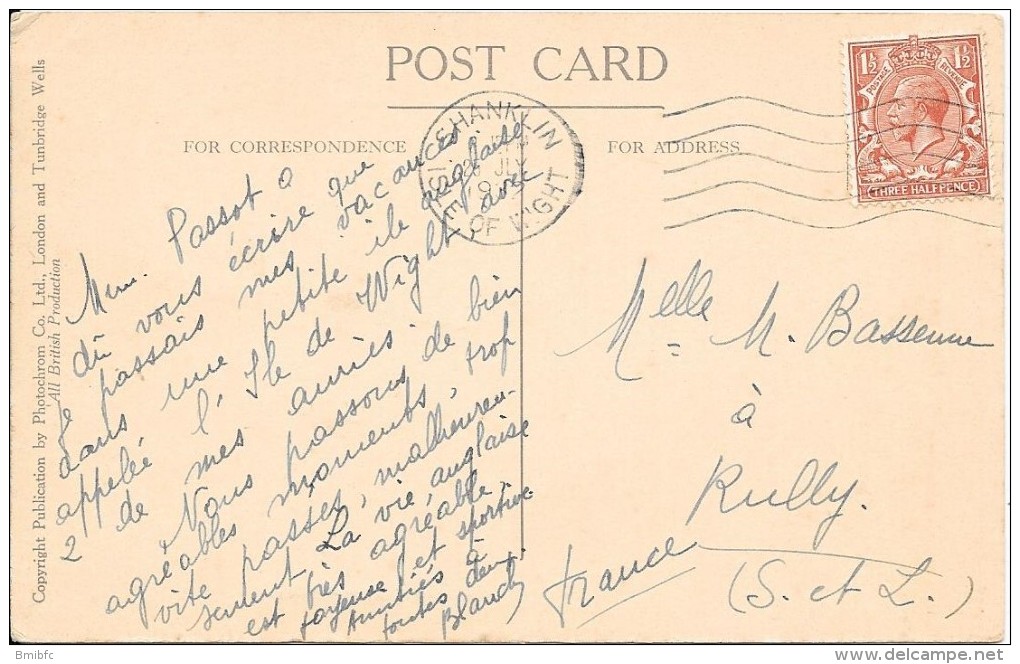 POST CARD
FOR CORRESPONDENCE
FOR ADDRESS
Copyright Publication by Photochrom Co. Ltd., London and Tunbridge Wells
All British Production
SHANKLIN
JLY
OF WIGHT
1½ 1½
POSTAGE REVENUE
THREE HALFPENCE
Mme. Passot a
dû vous écrire que
je passais mes vacances
dans une petite île anglaise
appelée l'Ile de Wight, avec
2 de mes amies.
Nous passons de bien
agréables moments, trop
vite passés, malheureu-
sement. La vie anglaise
est très agréable,
joyeuse et sportive
Amitiés à
toutes deux.
Blanch
Melle M. Bassenne
à
Rully.
(S. et L.)
France
Bmibfc
www.delcampe.net